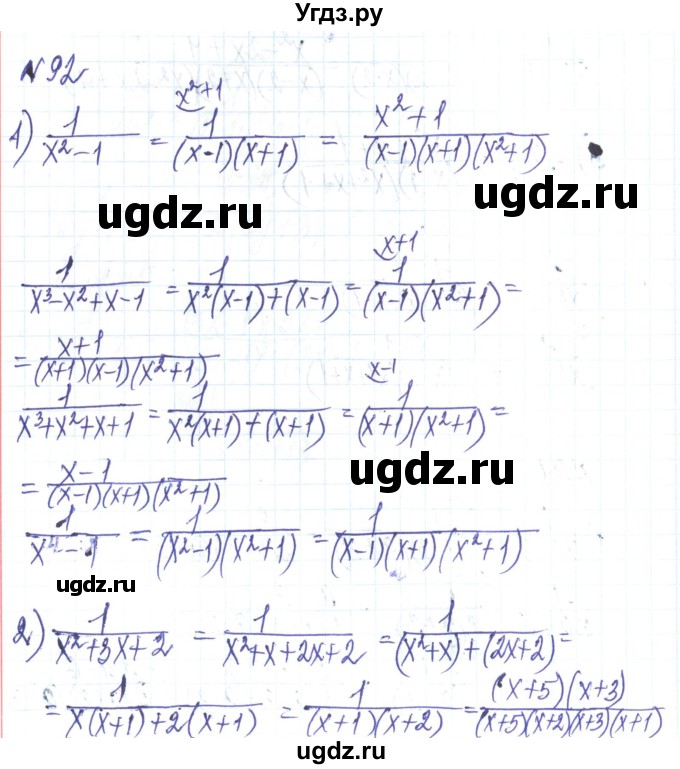 Угдз.ру
№92
1) 1/(x²-1) = 1/((x-1)(x+1)) (x²+1 = (x²+1)/((x-1)(x+1)(x²+1))
ugdz.ru
ugdz.ru
1/(x³-x²+x-1) = 1/(x²(x-1)+(x-1)) = 1/((x-1)(x²+1)) (x+1 =
= (x+1)/((x+1)(x-1)(x²+1))
1/(x³+x²+x+1) = 1/(x²(x+1)+(x+1)) = 1/((x+1)(x²+1)) (x-1 =
ugdz.ru
= (x-1)/((x-1)(x+1)(x²+1))
1/(x⁴-1) = 1/((x²-1)(x²+1)) = 1/((x-1)(x+1)(x²+1))
ugdz.ru
2) 1/(x²+3x+2) = 1/(x²+x+2x+2) = 1/((x²+x)+(2x+2)) =
= 1/(x(x+1)+2(x+1)) = 1/((x+1)(x+2)) = ((x+5)(x+3))/((x+5)(x+2)(x+3)(x+1))
Ugdz.ru
ugdz.ru